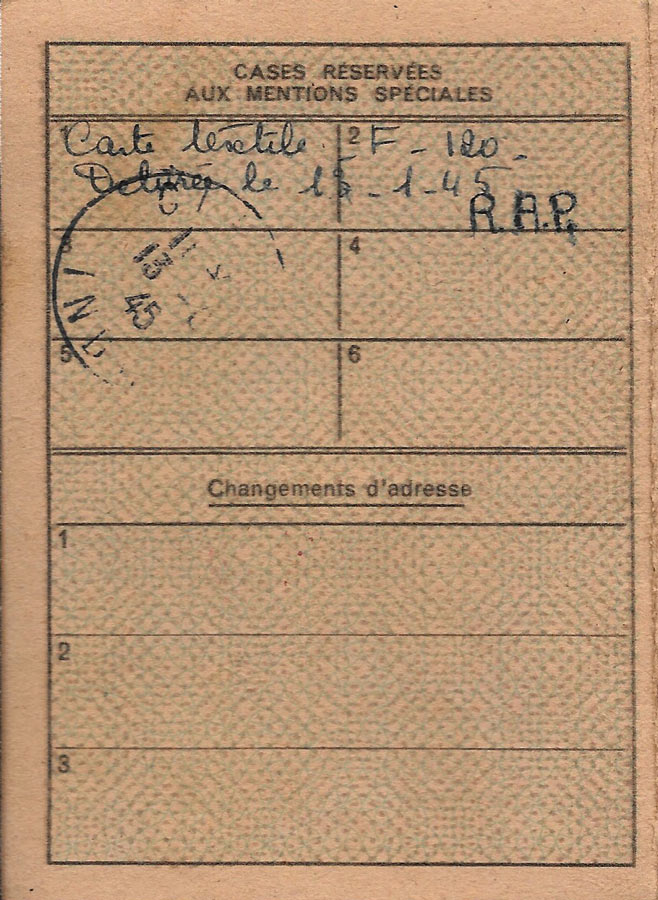 CASES RÉSERVÉES
AUX MENTIONS SPÉCIALES
Carte textile. 2 F - 120 -
le 15 - 1 - 45
R.A.P.
3 4
13
45
5 6
Changements d'adresse
1
2
3